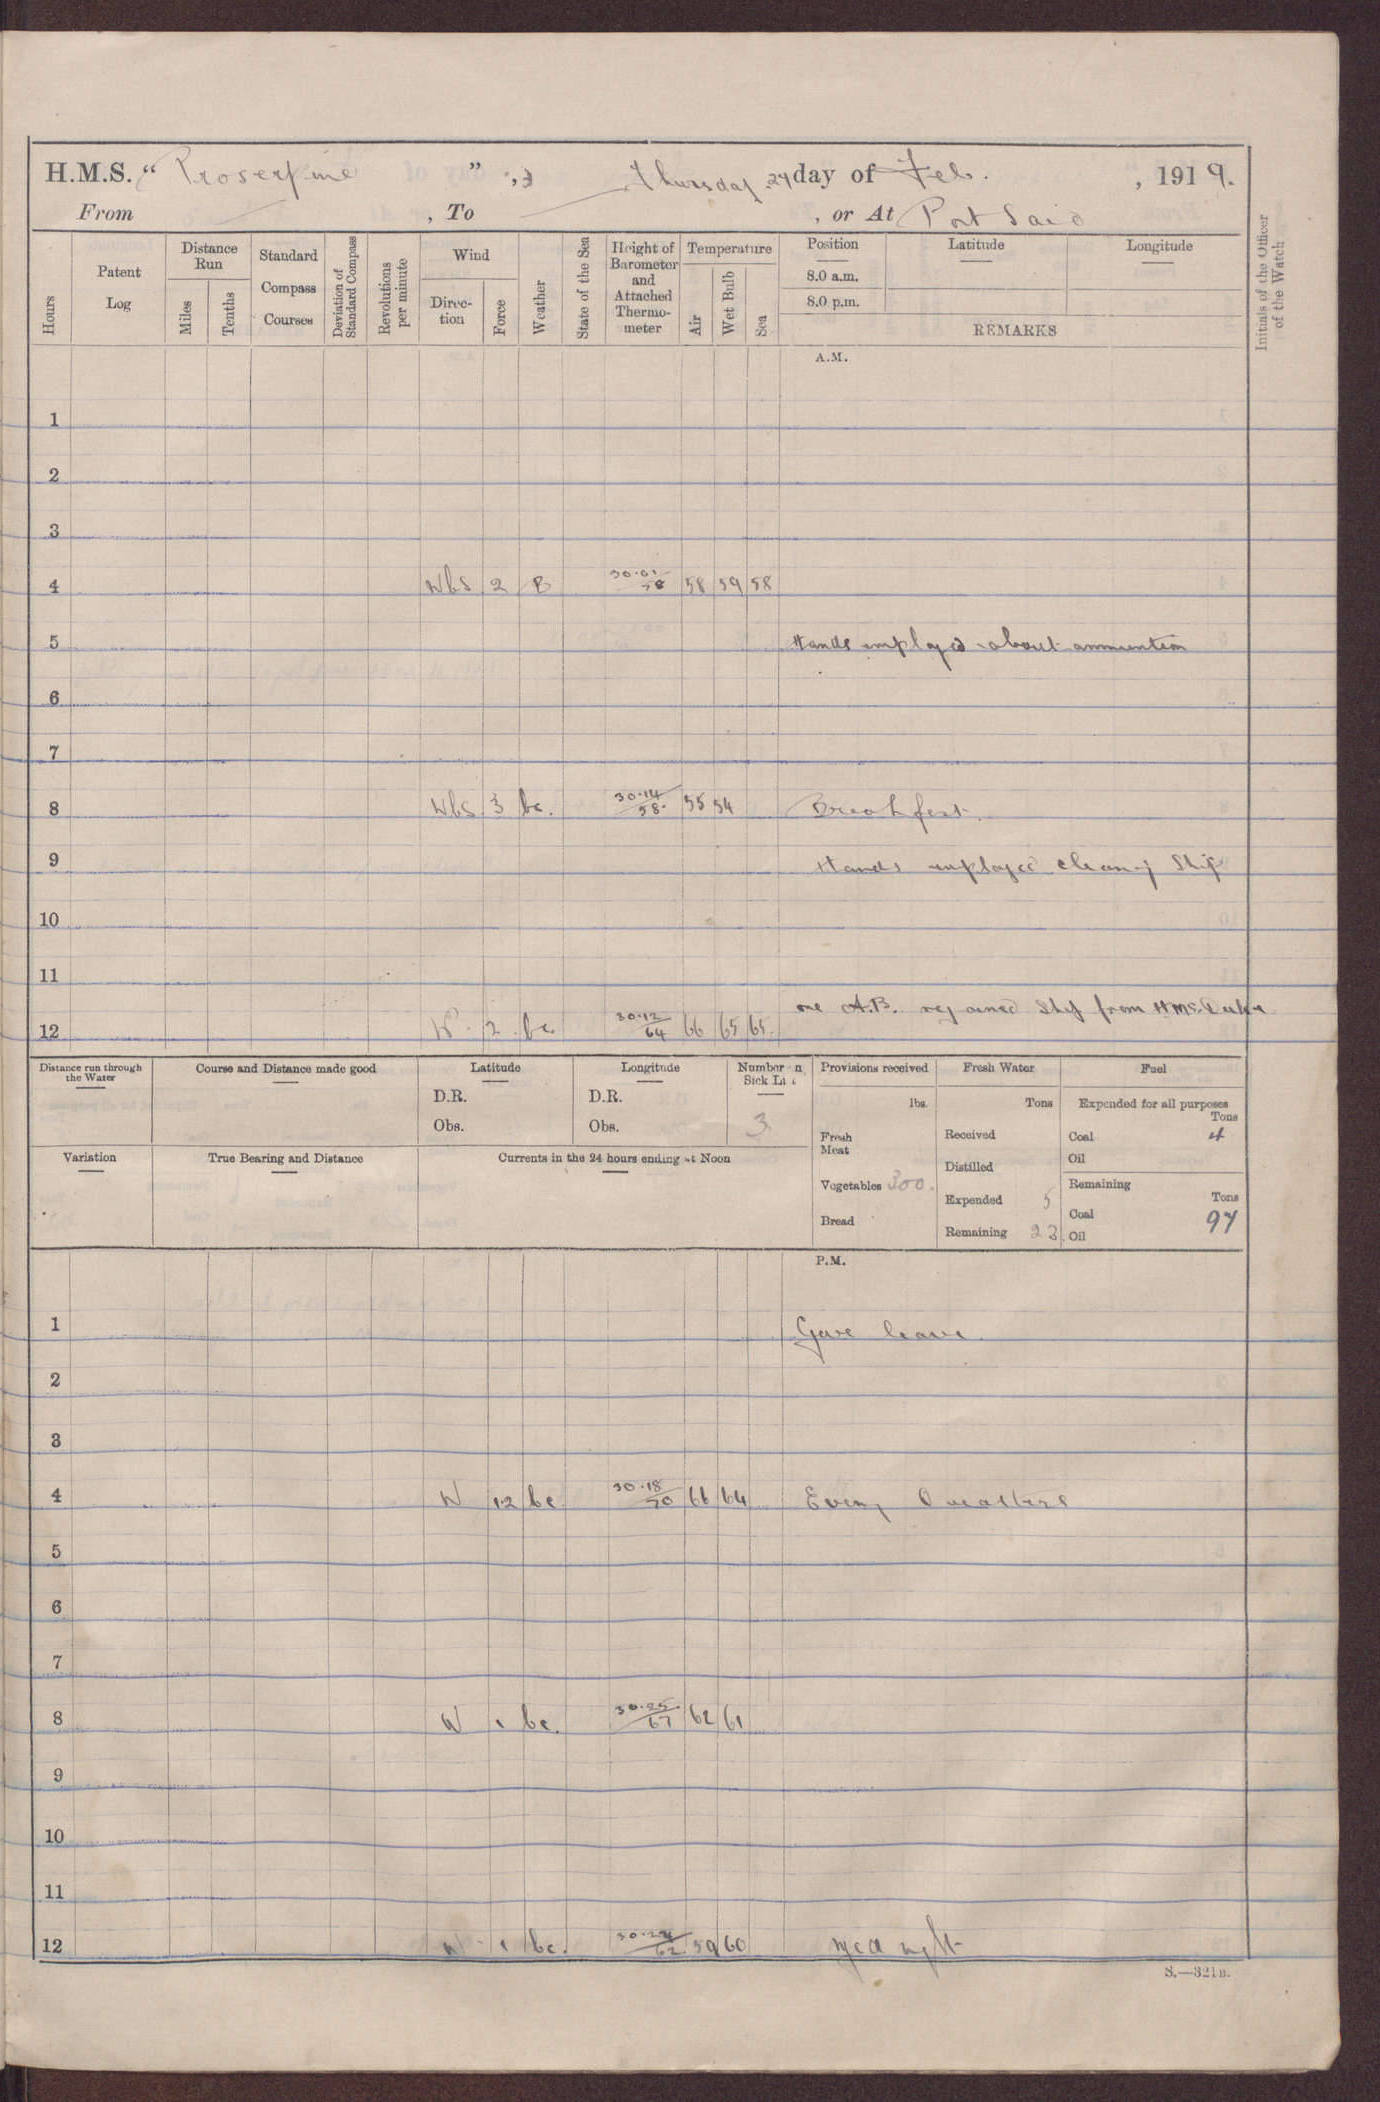 H.M.S. “ Proserpine ” , Thursday day of Feb. , 1919.
From , To , or At Port Said
Hours
Patent Log
Distance Run
Miles
Tenths
Standard Compass Courses
Deviation of Standard Compass
Revolutions per minute
Wind
Direc-tion
Force
Weather
State of the Sea
Height of Barometer and Attached Thermo-meter
Temperature
Air
Wet Bulb
Sea
Position
8.0 a.m.
8.0 p.m.
Latitude
Longitude
REMARKS
Initials of the Officer of the Watch
A.M.
1
2
3
4 WbS 2 B 58 59 58
5 Hands employed about ammuntion
6
7
8 WbS 3 bc. 30.14 58 55 54 Breakfast.
9 Hands employed cleang Ship
10
11
one A.B. rejoined Ship from HMS.
12 W. 2 bc 30.12 64 66 65 65.
Distance run through the Water
Course and Distance made good
Latitude
D.R.
Obs.
Longitude
D.R.
Obs.
Number on Sick List
3
Provisions received
lbs.
Fresh Meat
Vegetables 300.
Bread
Fresh Water
Tons
Received
Distilled
Expended 5
Remaining 23
Fuel
Expended for all purposes
Tons
Coal 4
Oil
Remaining
Tons
Coal 97
Oil
Variation
True Bearing and Distance
Currents in the 24 hours ending at Noon
P.M.
1 Gave leave
2
3
4 W 1.2 bc 30.18 70 66 64 Eveng Quarters
5
6
7
8 W 1 bc. 30.25 67 62 61
9
10
11
12 W 1 bc. 62 59 60 night
S.—321B.